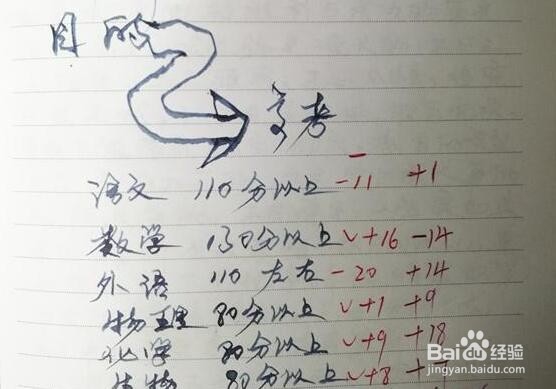 目的
高考
语文 110分以上 -11 +1
数学 130分以上 √+16 -14
外语 110左右 -20 +14
物理 80分以上 √+1 +9
化学 80分以上 √+9 +18
生物 80分以上 √+8
Baidu 经验
jingyan.baidu.com